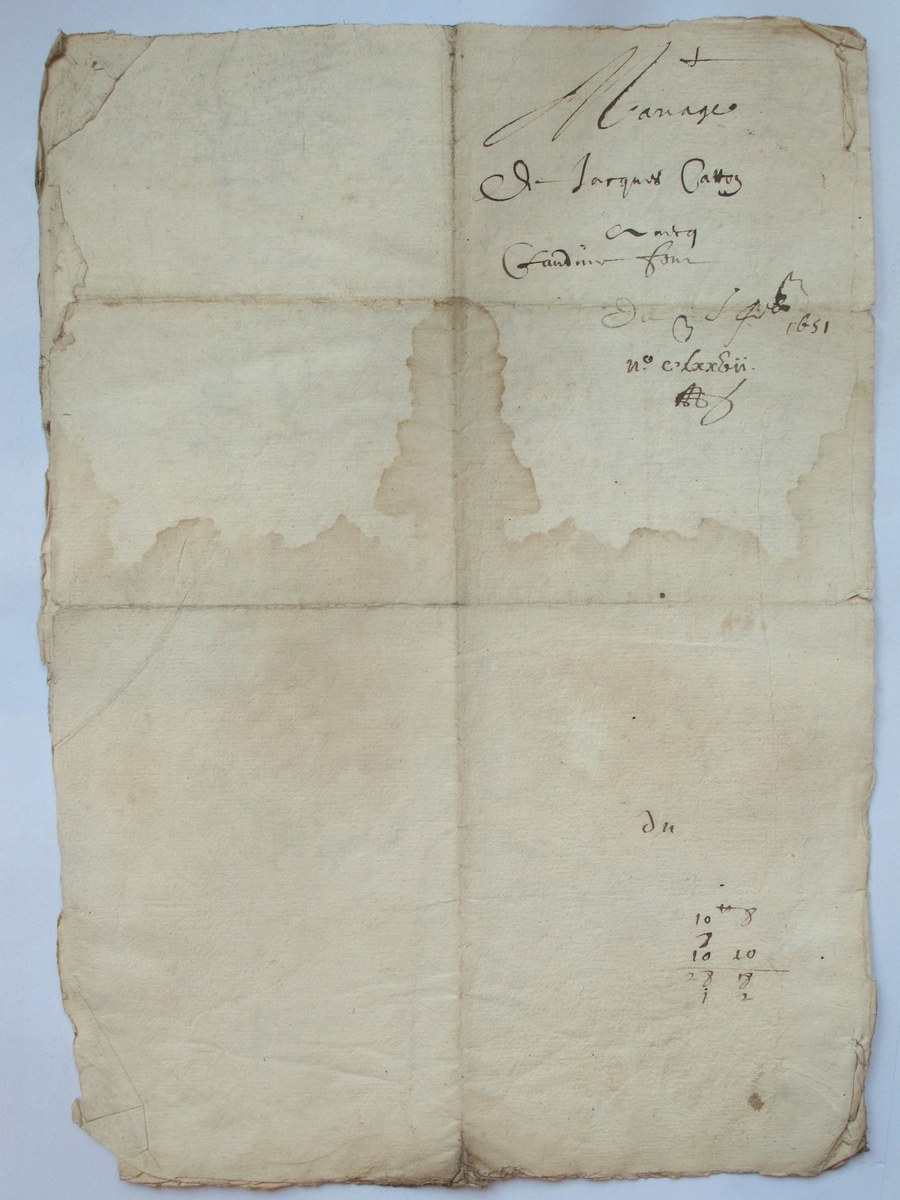 Mariage
De Jacques Catton
avecq
Claudine four
Du 1651
n.o clxxvii.
du
10 8
10 10
28 8
1 2